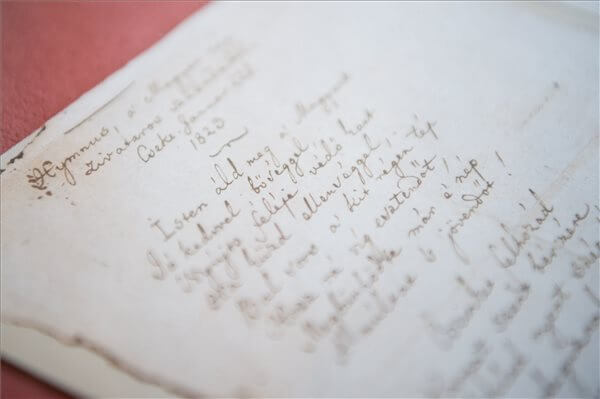 Hymnus, á Magyar
zivataros
Cseke. Januar
1823
Isten áld meg á Magyart
Jó kedvvel bőséggel,
Nyújts feléje védő kart
Ha küzd ellenséggel;
Bal sors á kit régen tép
Hozz rá víg esztendőt,
Megbünhődte már á nép
A multat s jövendőt!
felhozád
szent bérczére,
nyert szép